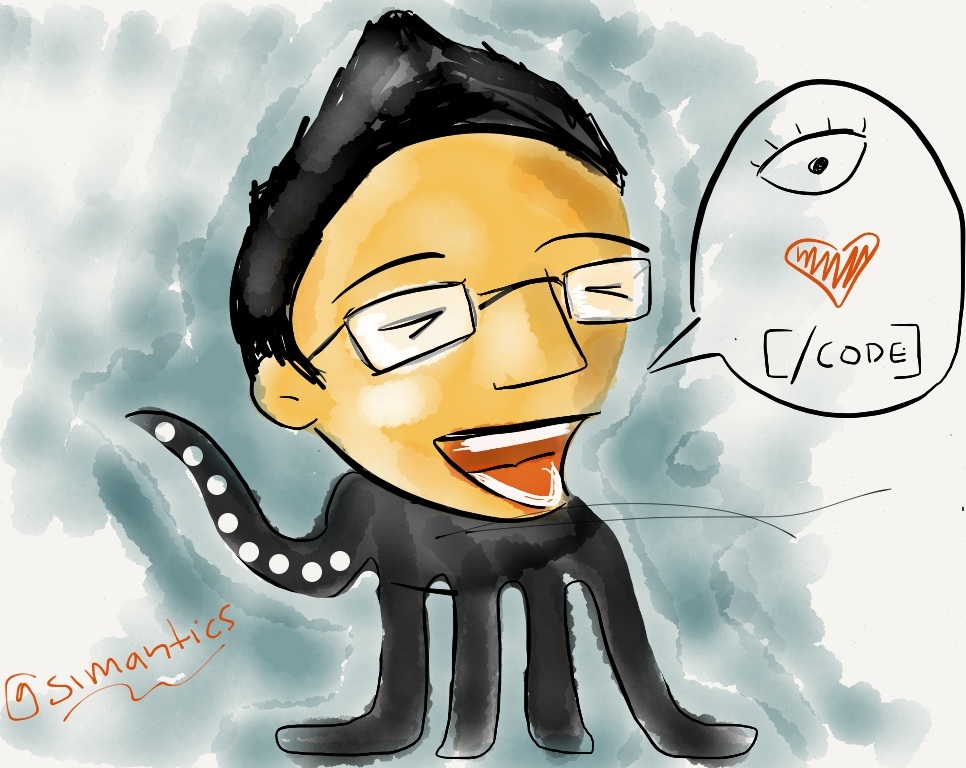 [/CODE]
@simantics